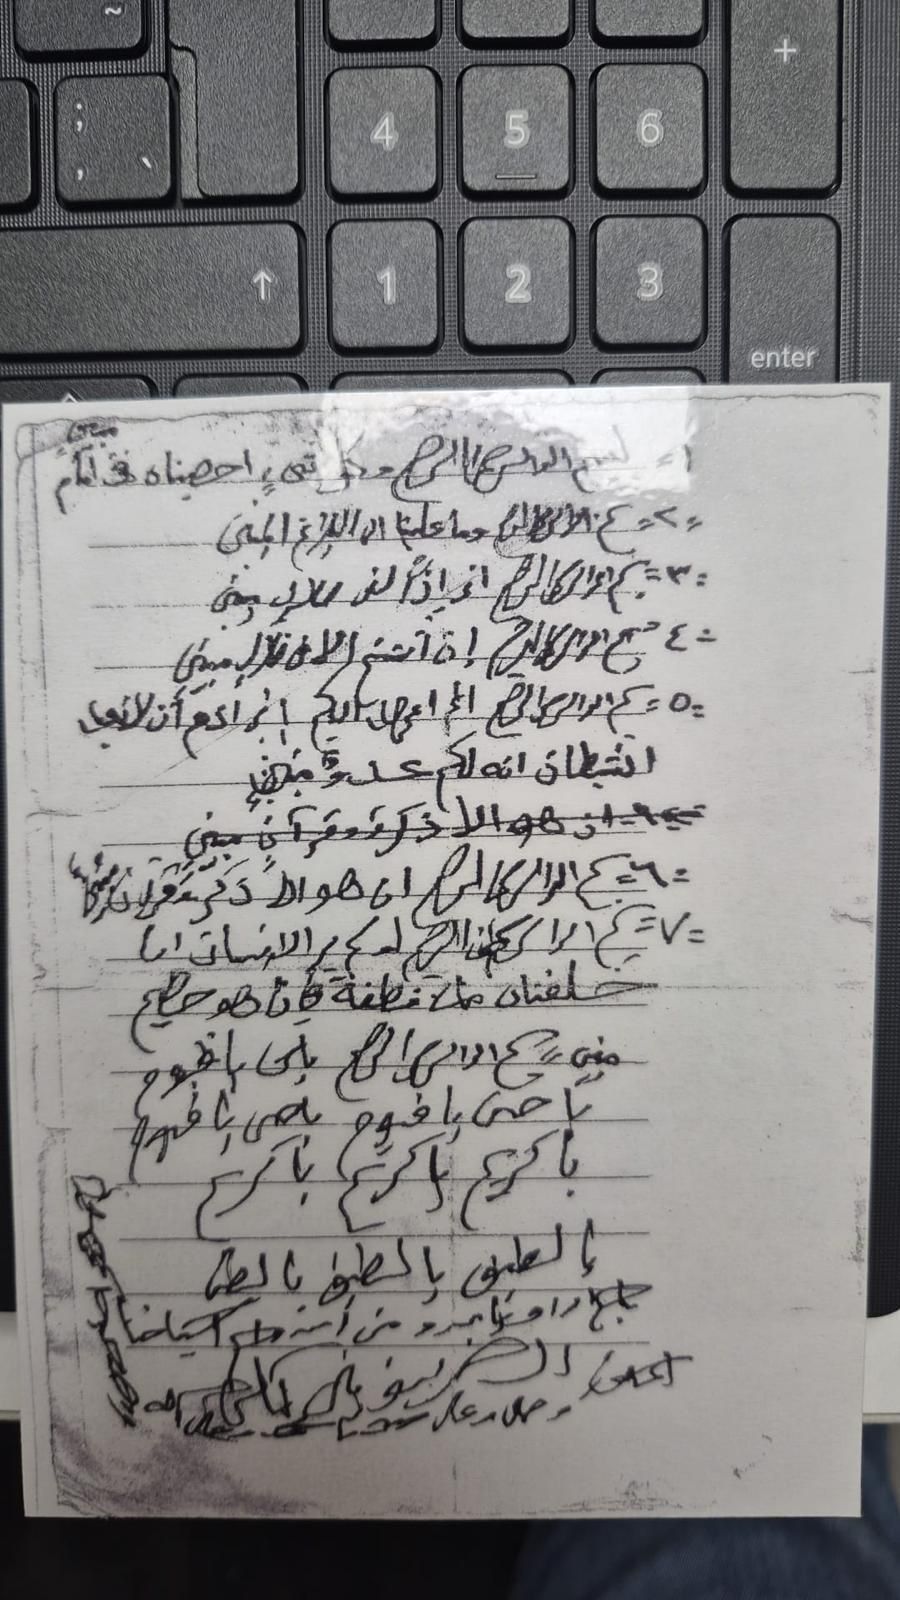 ~
;
,
4
5
6
+
↑
1
2
3
enter
مبين
١= بسم الله الرحمن الرحيم وكل شيء احصيناه في امام
=٢= بسم الله الرحمن الرحيم وما علينا الا البلاغ المبين
=٣= بسم الله الرحمن الرحيم اني اذاً لفي ضلال مبين
=٤= بسم الله الرحمن الرحيم إن أنتم الا في ضلال مبين
=٥= بسم الله الرحمن الرحيم الم اعهد اليكم يا بني آدم أن لا تعبدوا
الشيطان انه لكم عدو مبين
ان هو الا ذكر وقرآن مبين
=٦= بسم الله الرحمن الرحيم ان هو الا ذكر وقرآن مبين
=٧= بسم الله الرحمن الرحيم اولم ير الانسان انا
خلقناه من نطفة فإذا هو خصيم
مبين بسم الله الرحمن الرحيم يا حي يا قيوم
يا حي يا قيوم يا حي يا قيوم
يا كريم يا كريم يا كريم
يا لطيف يا لطيف يا لطيف